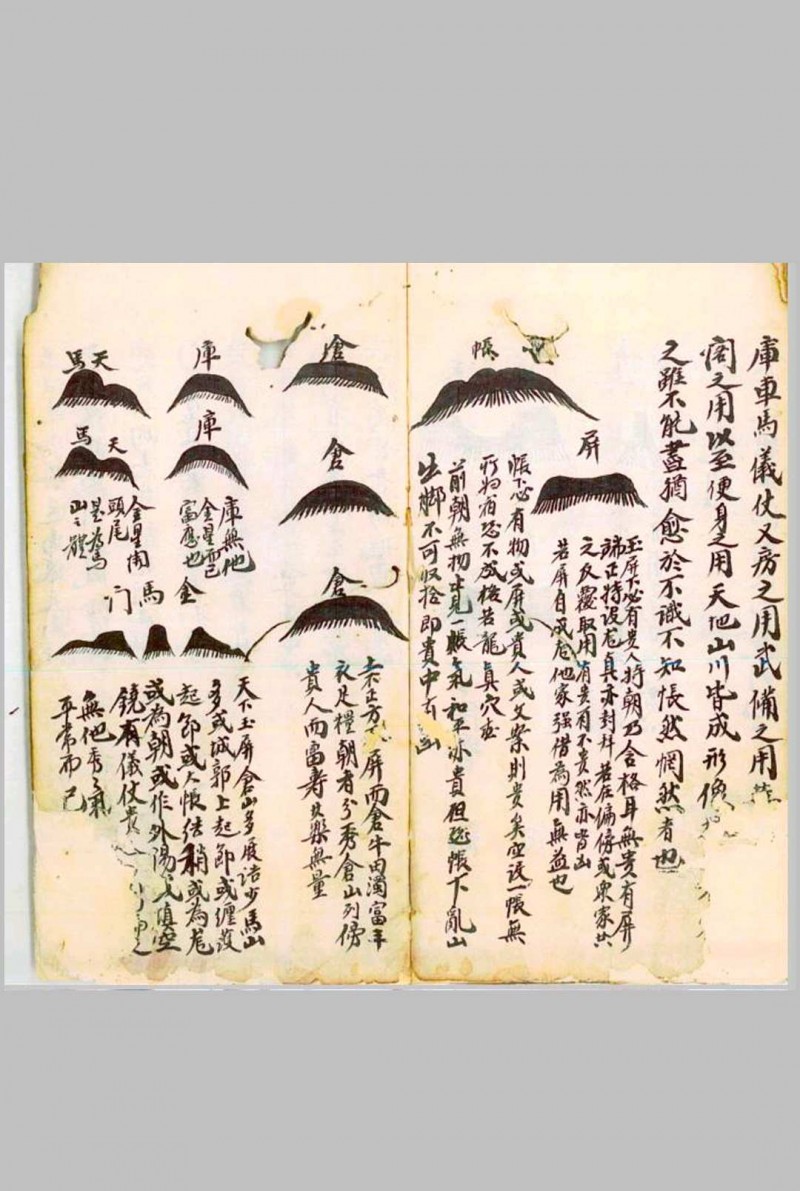 庫車馬儀仗文房之用武備之用
閣之用以至便身之用天地山川皆成形像
之雖不能盡猶愈於不識不知悵然惘然者也
帳
屏
玉屏下必有貴人特朝乃合格耳無貴有屏
端正特設龙真亦封拜若在偏傍或众家共
之反覆取用有貴有不貴然亦皆
若屏自成龙他家强借為用無益也
帳下必有物或屏或貴人或文案則貴矣空设一帳無
所為者恐不成格若龍真穴
前朝無物止見一帳氣和平亦貴但恐帳下亂山
出脚不可収拾即貴中有凶
倉
倉
倉
屏而倉牛田濁富
衣足糧朝者分秀倉山列傍
貴人而富寿其樂無量
庫
庫
庫無他
金星而已
富應也
天馬
天馬
金星開
頭尾
是為馬
山之體
金馬门
天下玉屏倉山多展诰少馬山
多或城郭上起節或缠護
起節或大帳结稍或為龙
或為朝或作外陽之填空
鏡有儀仗貴
無他秀氣
平常而已